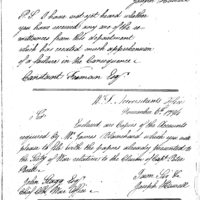 P.S. I have not yet heard whether
you have received any of the re
mittances from this department
which has created much apprehension
of a failure in the Consequence
Constant Freeman Esq
Accountants Office
November 6th 1796
Sir
Enclosed are Copies of the Accounts
required by Mr James Blanchard which you will
please to file with the papers already presented to
the Secty of War relative to the Claim of Capt Peter
John Stagg Esq
Chief Clk War Office
I am Sir &c
Joseph Howell